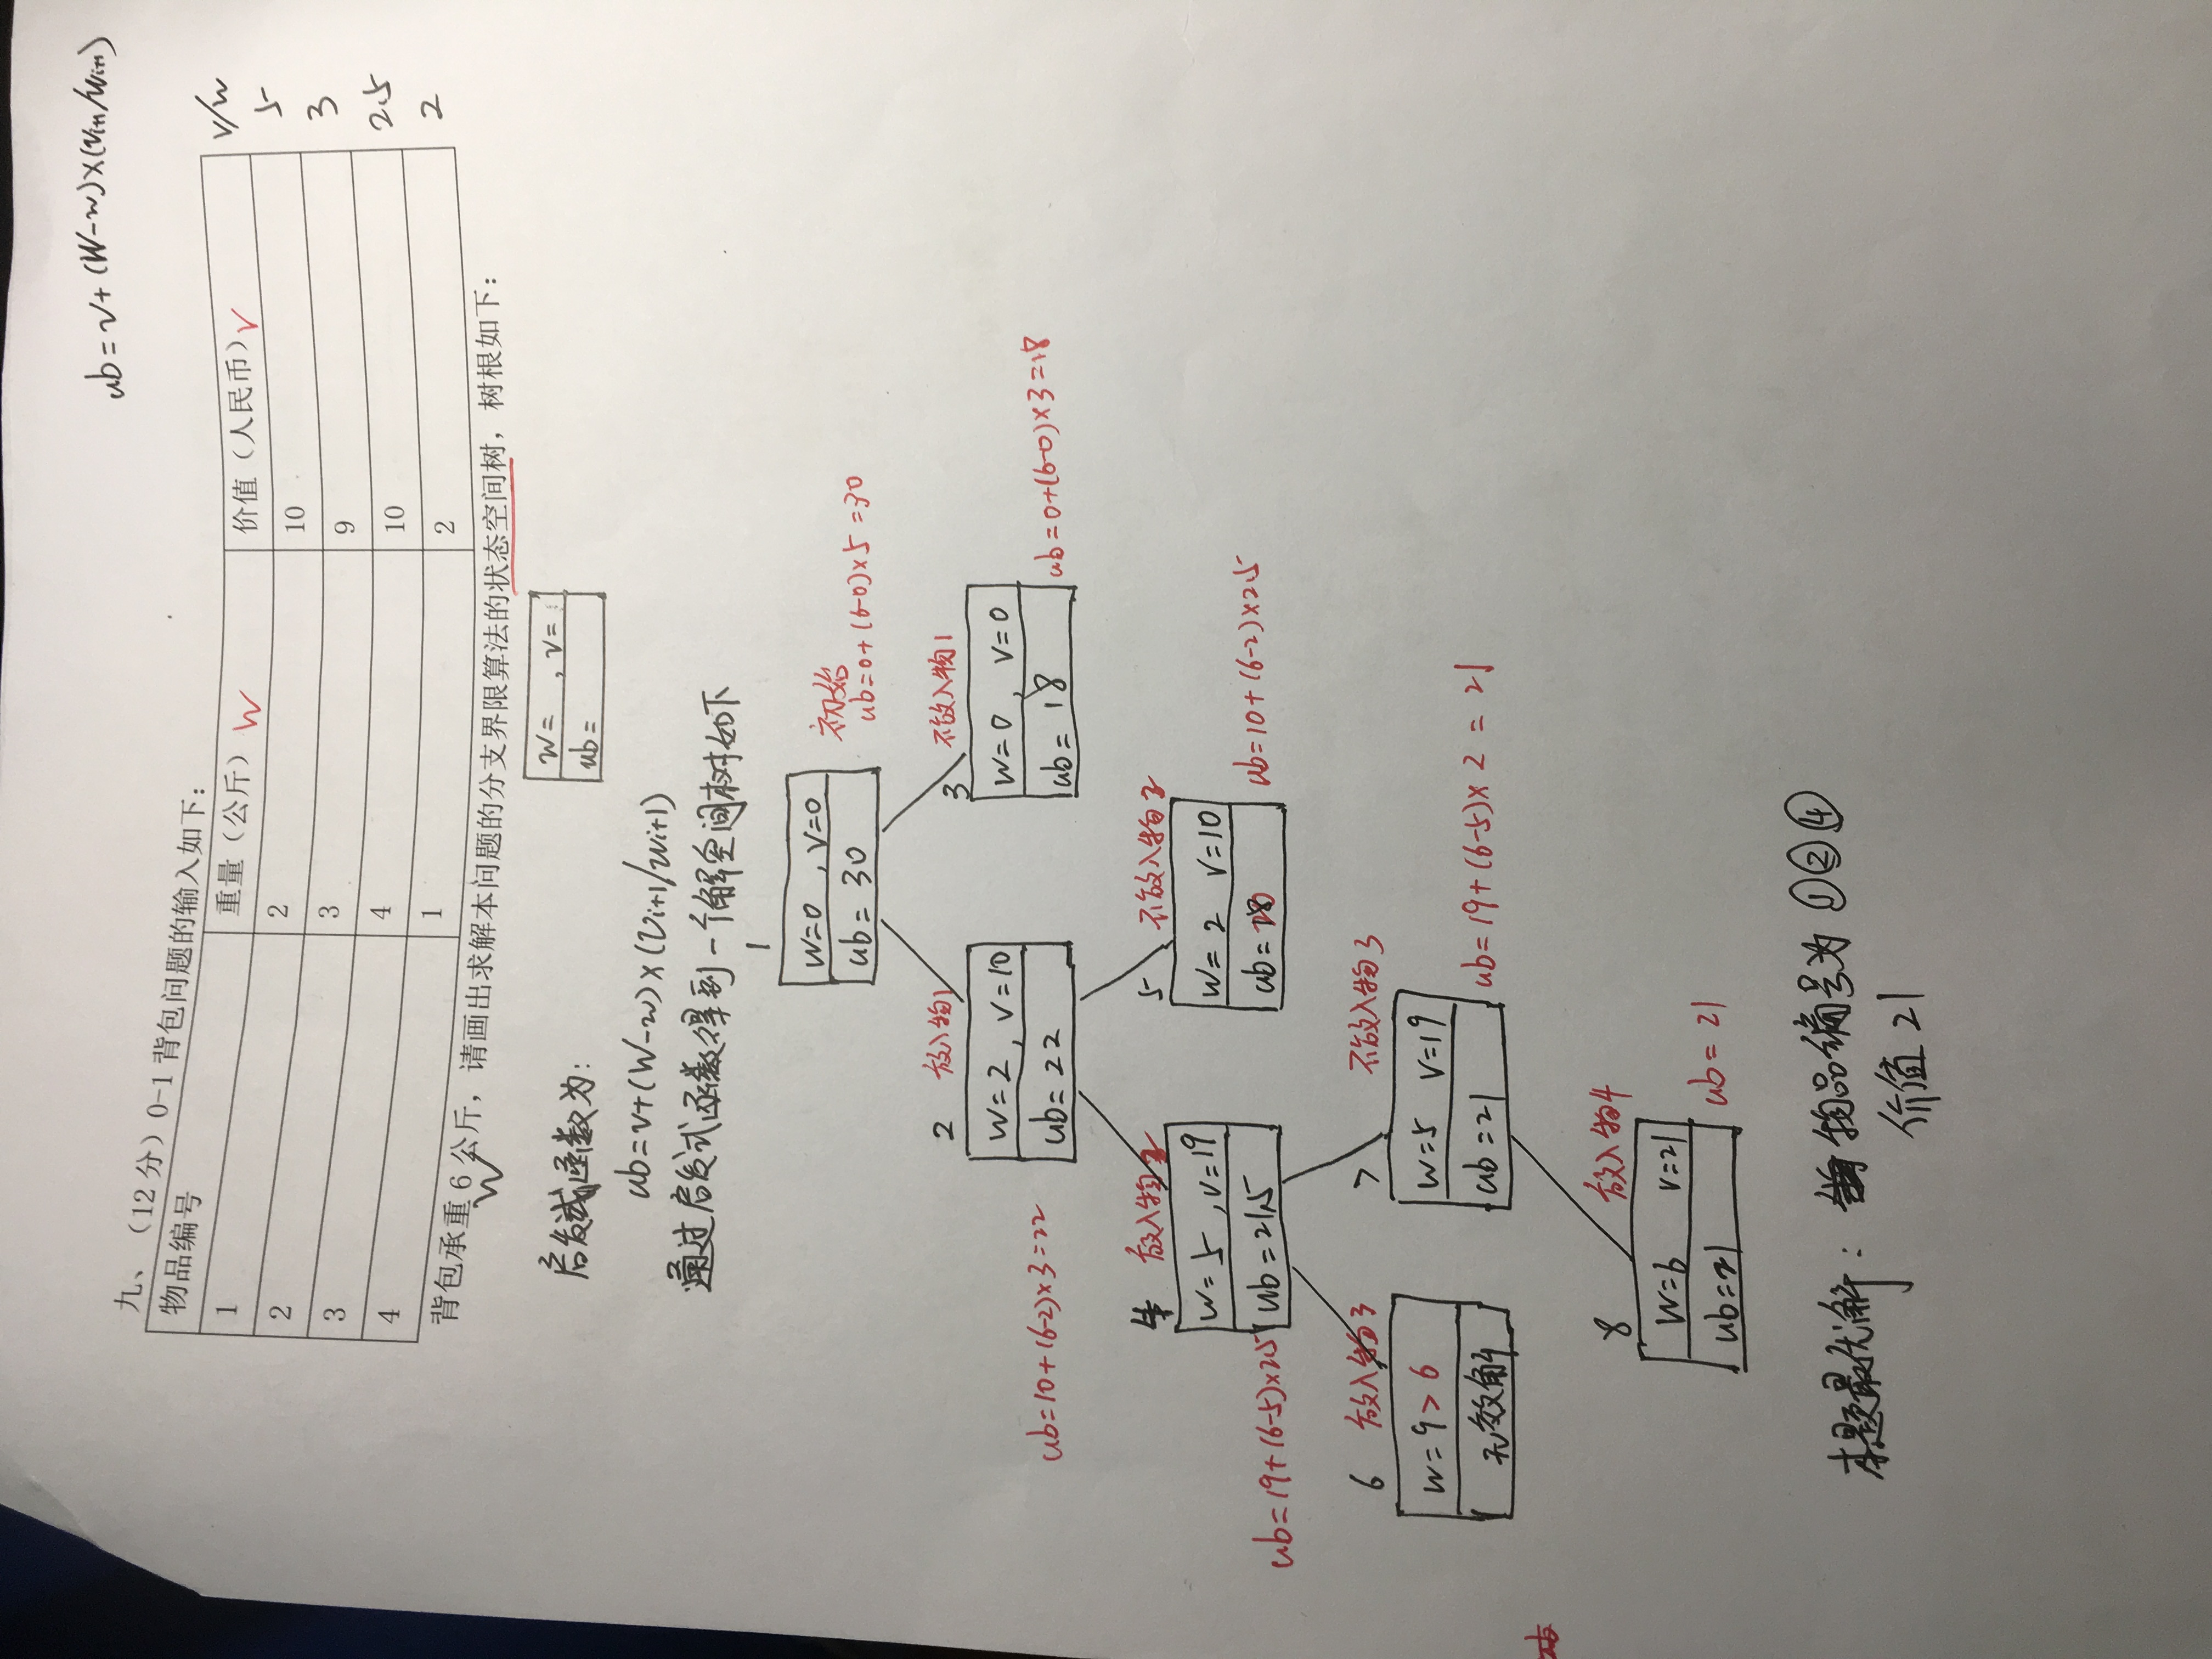 ub=v+(W-w)×(vi+1/wi+1)
九、（12 分）0-1 背包问题的输入如下：
物品编号 重量（公斤） W 价值（人民币） V v/w
1 2 10 5
2 3 9 3
3 4 10 2.5
4 1 2 2
背包承重 6 公斤，请画出求解本问题的分支界限算法的状态空间树，树根如下：
W
w= , v=
ub=
启发式函数为:
ub=v+(W-w)×(vi+1/wi+1)
通过启发式函数得到一个解空间树如下
1
w=0 , v=0
ub= 30
初始
ub=0+(6-0)×5=30
2 放入物1
w=2 , v=10
ub=22
ub=10+(6-2)×3=22
3 不放入物1
w=0 , v=0
ub= 18
ub=0+(6-0)×3=18
4 放入物2
w=5 , v=19
ub=21.5
ub=19+(6-5)×2.5
5 不放入物2
w=2 v=10
ub=20
ub=10+(6-2)×2.5
6 放入物3
w=9>6
无效解
7 不放入物3
w=5 v=19
ub=21
ub=19+(6-5)×2=21
8 放入物4
w=6 v=21
ub=21
ub=21
本题最优解: 物品编号为①②④
价值21